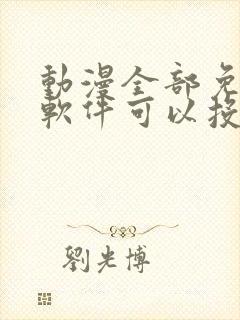 動漫全部免
軟件可以投
劉光博